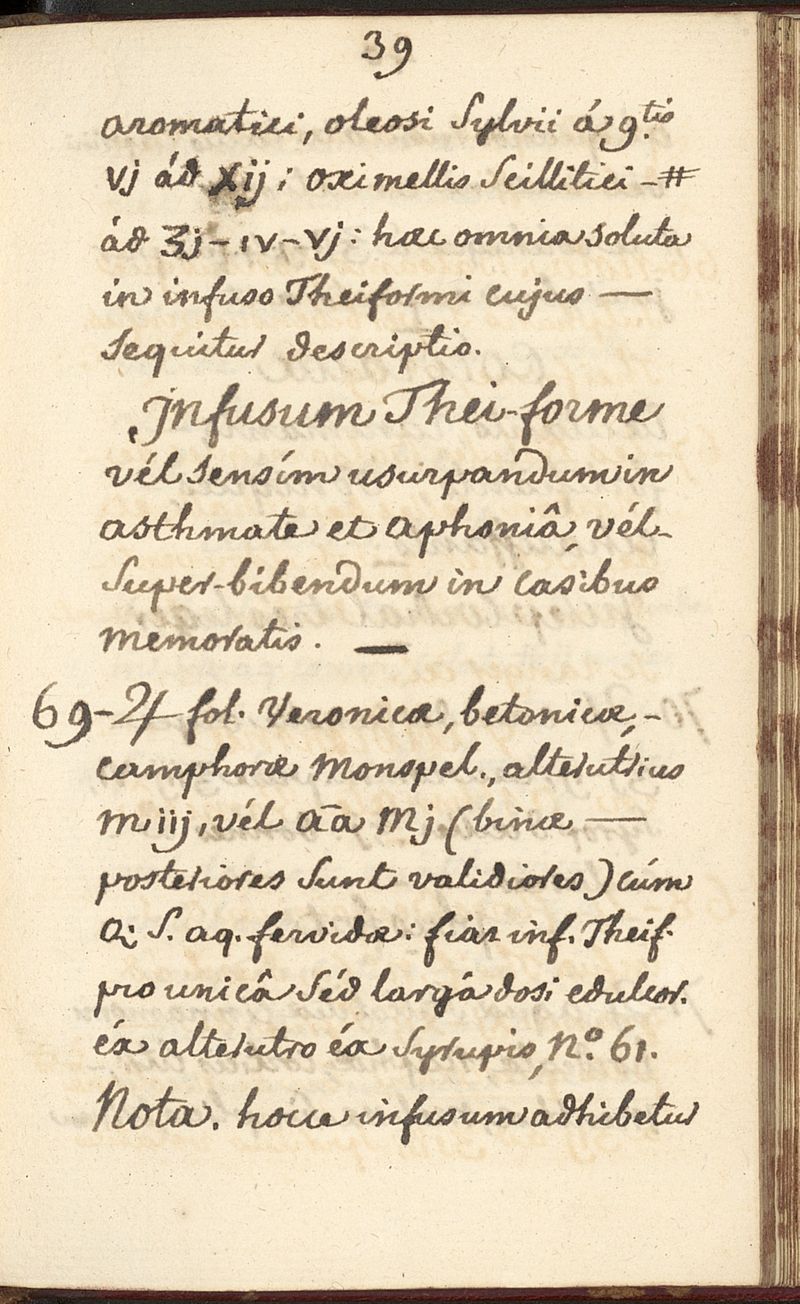 39
aromatici, oleosi Sylvii á g.tis
vj ád xij; oximellis Scillitici -#
ád ʒj - iv - vj: hæc omnia soluta
in infuso Theiformi cujus —
sequitur descriptio.
Jnfusum Thei-forme
vél sensím usurpandum in
asthmate et aphoniâ, vél-
Super-bibendum in casibus
memoratis. —
69-♃ fol. Veronicæ, betonicæ,-
camphoræ Monspel., alterutrius
m iij, vél āa mj (binæ —
posteriores sunt validiores) cúm
S. aq. fervidæ: fiat inf. Theif.
pro unicâ séd largâ dosi edulcor.
éx alterutro éx syrupis, N.º 61.
Nota. hocce infusum adhibetur